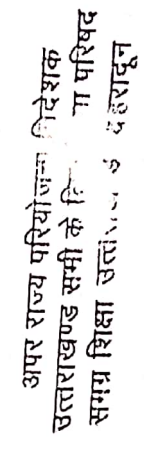 अपर राज्य परियोजना निदेशक
उत्तराखण्ड सभी के परिषद
समग्र शिक्षा देहरादून